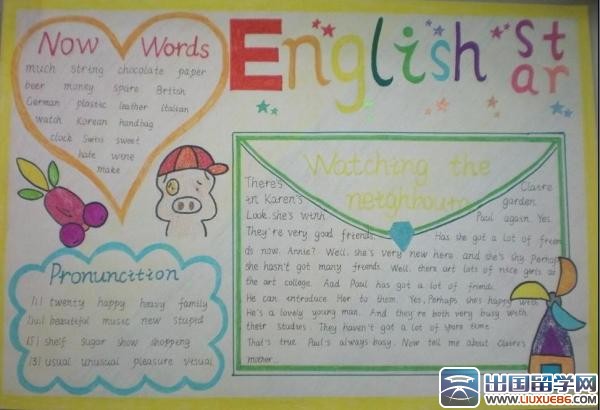 English star
Now Words
much string chocolate paper
beer money spare British
German plastic leather Italian
watch Korean handbag
clock Swiss sweet
hate wine
make
Pronunction
/i/ twenty happy heavy family
beautiful music new stupid
/ʃ/ shelf sugar show shopping
/ʒ/ usual unusual pleasure visual
Watching the
neighbours
There's Claire
in Karen's garden.
Look. she's with Paul again. Yes.
They're very good friends. Has she got a lot of frien
ds now. Annie? Well. she's very new here and she's shy. Perhaps
she hasn't got many friends. Well. there art lots of nice girls at
the art college. And Paul has got a lot of friends.
He can introduce Her to them. Yes. Perhaps she's happy with
He's a lovely young man. And they're both very busy with
their studies. They haven't got a lot of spare time.
That's true Paul's always busy. Now tell me about Claire's
mother...
出国留学网
WWW.LIUXUE86.COM